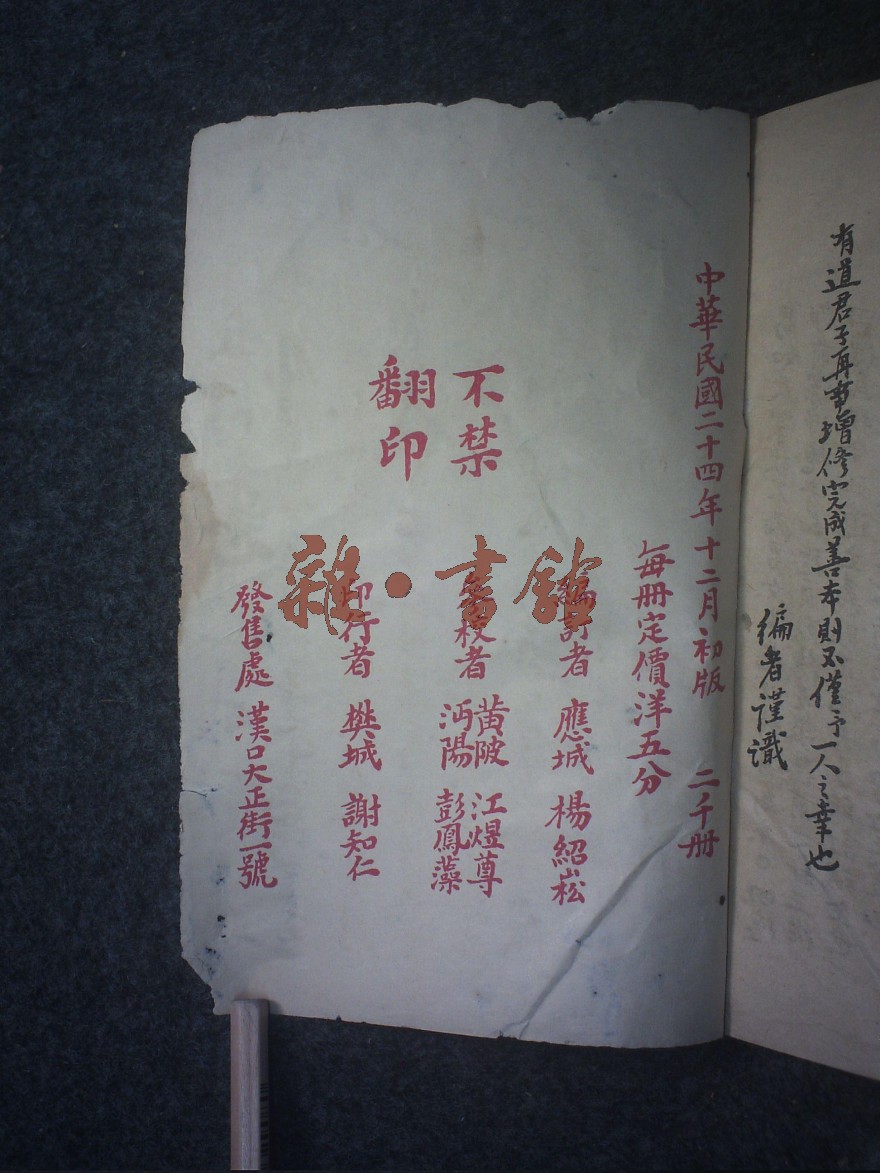 有道君子再事增修完成善本則又不僅予一人之幸也
編者謹識
中華民國二十四年十二月初版 二千册
每册定價洋五分
不禁
翻印
編訂者 應城 楊紹崧
參校者 黄陂 江煜尊
沔陽 彭鳳藻
印行者 樊城 謝知仁
發售處 漢口大正街一號
雜·書館